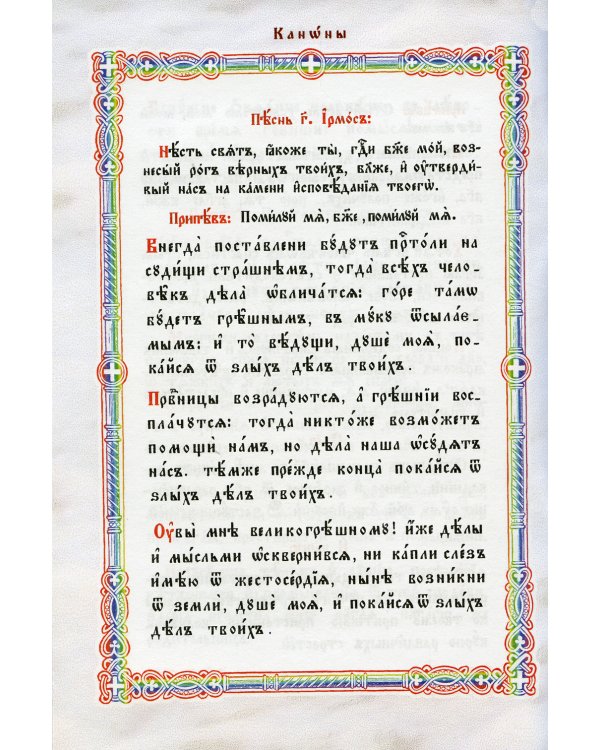 Канѡ́ны
Пѣ́снь г҃. І҆рмо́съ:
Нѣ́сть свѧ́тъ, ꙗ҆́коже ты̀, гдⷭ҇и бж҃е мо́й, воз-
несы́й ро́гъ вѣ́рныхъ твои́хъ, бл҃же, и҆ ᲂу҆тверди́-
вый на́съ на ка́мени и҆сповѣ́данїѧ твоегѡ̀.
Припѣ́въ: Поми́лꙋй мѧ̀, бж҃е, поми́лꙋй мѧ̀.
Внегда̀ поста́влени бꙋ́дꙋтъ прⷭ҇то́ли на
сꙋди́щи стра́шнѣмъ, тогда̀ всѣ́хъ чело-
вѣ́къ дѣла̀ ѡ҆блича́тсѧ: го́ре та́мѡ
бꙋ́детъ грѣ́шнымъ, въ мꙋ́кꙋ ѿсыла́є-
мымъ: и҆ то̀ вѣ́дꙋщи, дꙋшѐ моѧ̀, по-
ка́йсѧ ѿ ѕлы́хъ дѣ́лъ твои́хъ.
Првⷣницы возра́дꙋютсѧ, а҆ грѣ́шнїи вос-
пла́чꙋтсѧ: тогда̀ никто́же возмо́жетъ
помощѝ на́мъ, но дѣла̀ на́ша ѡ҆сꙋ́дѧтъ
на́съ. тѣ́мже пре́жде конца̀ пока́йсѧ ѿ
ѕлы́хъ дѣ́лъ твои́хъ.
Оу҆вы̀ мнѣ̀ великогрѣ́шномꙋ! и҆́же дѣ́лы
и҆ мы́сльми ѡ҆скверни́всѧ, ни ка́пли сле́зъ
и҆мѣ́ю ѿ жестосе́рдїѧ, ны́нѣ возни́кни
ѿ землѝ, дꙋшѐ моѧ̀, и҆ пока́йсѧ ѿ ѕлы́хъ
дѣ́лъ твои́хъ.